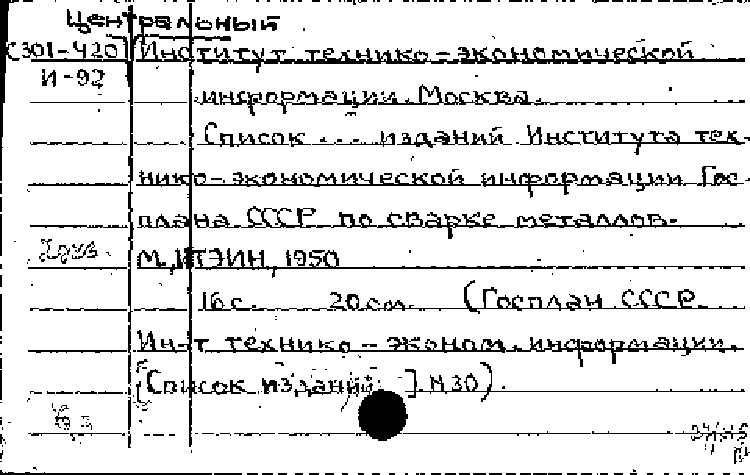 Центральный
С301-420 Институт технико-экономической
И-92
информации. Москва.
Список ... изданий Института тех-
нико-экономической информации Гос-
плана СССР по сварке металлов.
М., ИТЭИН, 1950
16 с. 20 см. (Госплан СССР.
Ин-т технико-эконом. информации.
[Список изданий ] N30).